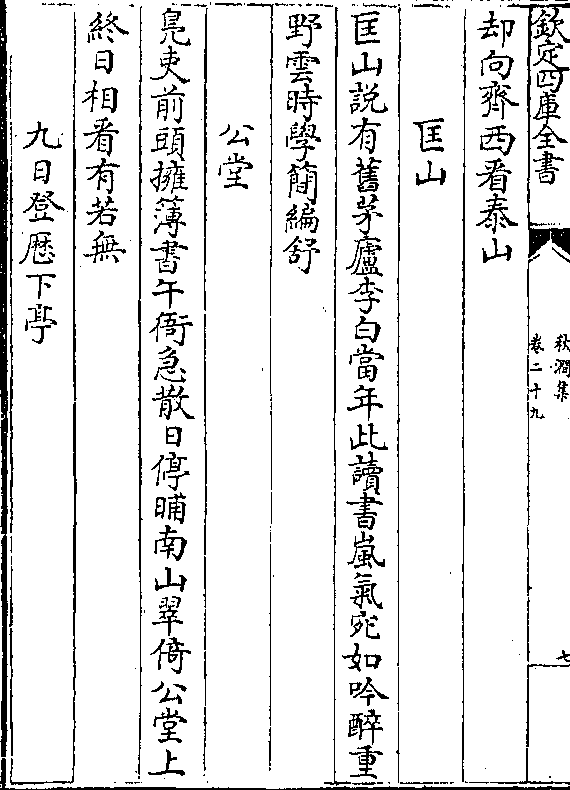 欽定四庫全書
秋澗集
卷二十九
七
却向齊西看泰山
匡山
匡山說有舊茅廬李白當年此讀書嵐氣宛如吟醉重
野雲時學簡編舒
公堂
鳧吏前頭擁簿書午衙急散日停晡南山翠倚公堂上
終日相看有若無
九日登歷下亭